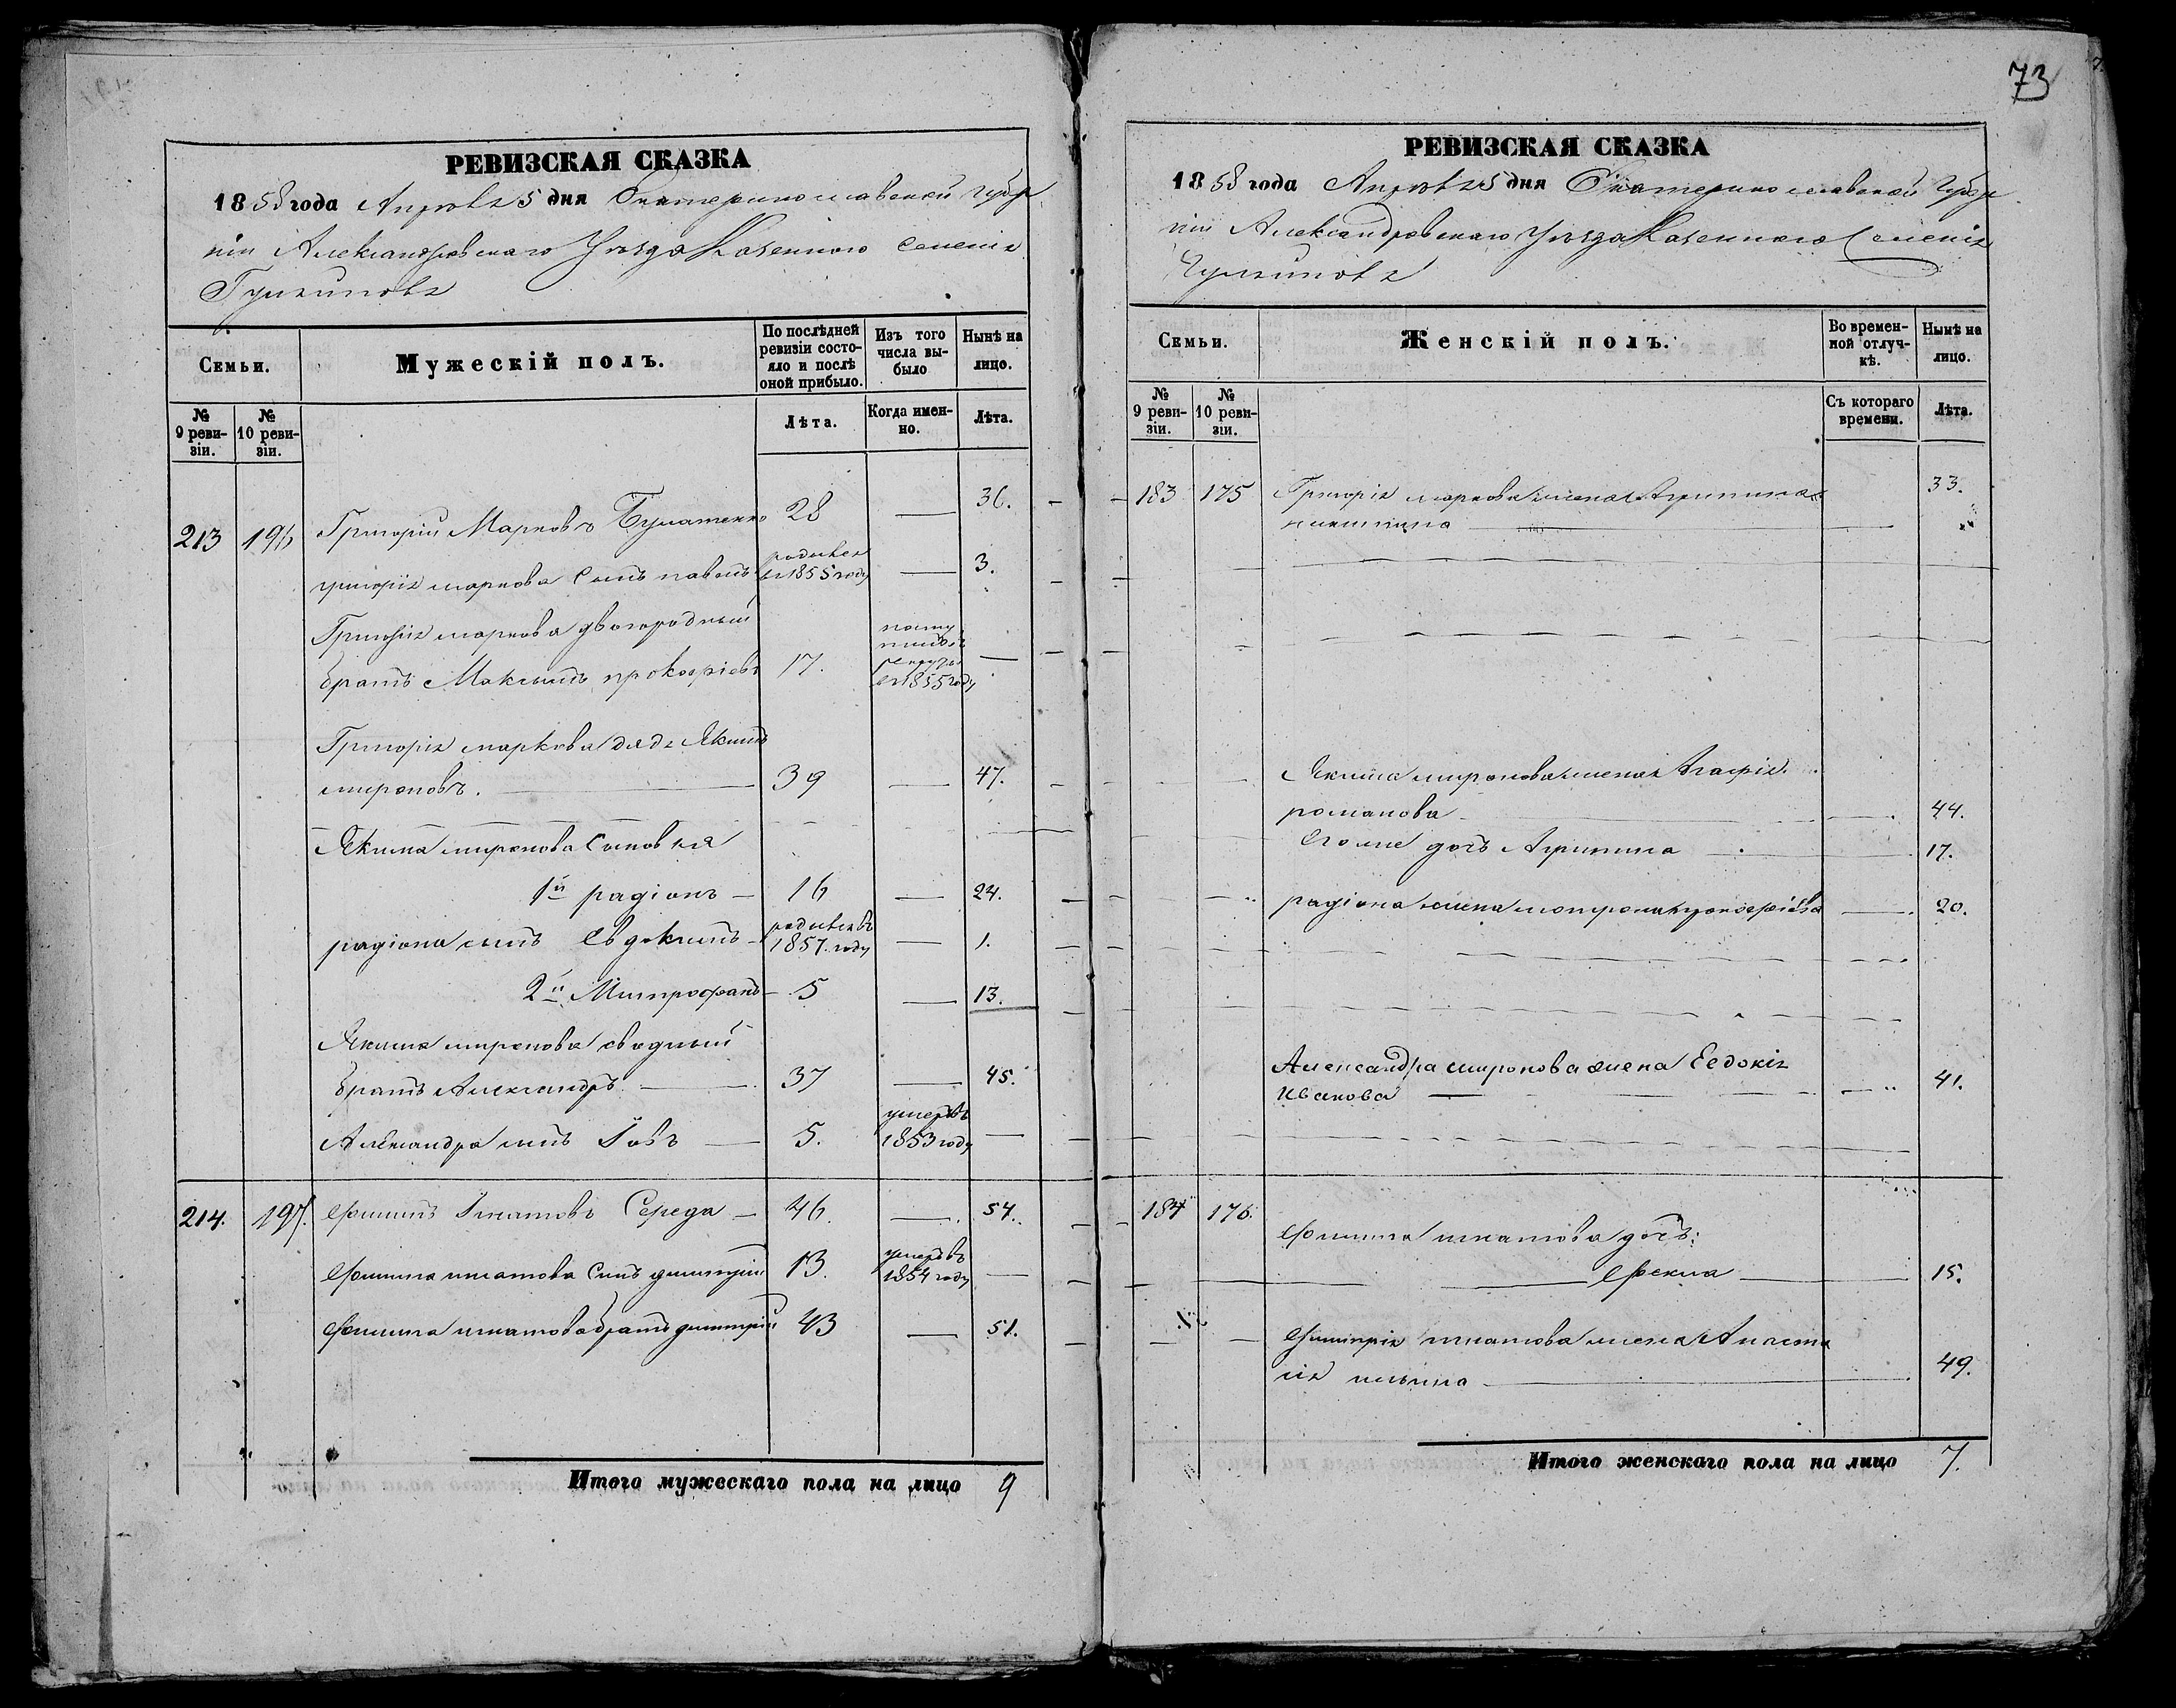 73
РЕВИЗСКАЯ СКАЗКА
1858 года Апреля 5 дня Екатеринославской Губер
ніи Александровскаго Уезда Казенного Селенія
РЕВИЗСКАЯ СКАЗКА
1858 года Апреля 5 дня Екатеринославской Губер
ніи Александровскаго Уезда Казенного Селенія
Семьи.
Мужескій полъ.
По послѣдней ревизіи состояло и послѣ оной прибыло.
Изъ того числа выбыло
Нынѣ на лицо.
№ 9 ревизіи.
№ 10 ревизіи.
Лѣта.
Когда именно.
Лѣта.
213 196 Григорий Марковъ Булатенко 28 — 36.
Григорія маркова сынъ павелъ родився в 1855 году — 3.
Григорія маркова двоюродный
братъ Максимъ прокофіевъ 17. рекруты в 1855 году —
Григорія маркова дядя Якимъ
мироновъ. — 39 — 47.
Якима миронова сыновья
1й радіонъ — 16 — 24.
радіона сынъ Евдокимъ — родився въ 1857. году — 1.
2й Митрофанъ — 5 — 13.
Якима миронова сводный
братъ Александръ — 37 — 45.
Александра сынъ Іовъ — 5. умеръ въ 1853 году —
214. 197. Филипъ Игнатовъ Середа — 46. — 54.
Филипа игнатова сынъ димитрий 13. умеръ въ 1854 году —
Филипа игнатова братъ димитрий 43 — 51.
Итого мужескаго пола на лицо 9
Семьи.
Женскій полъ.
Во временной отлучкѣ.
Нынѣ на лицо.
№ 9 ревизіи.
№ 10 ревизіи.
Съ котораго времени.
Лѣта.
183 175 Григорія маркова жена Агрипина 33.
никитина —
Якима миронова жена Агафія
романова — 44.
Его же дочь Агрипина — 17.
радіона жена мотрона прокофіева — 20.
Александра миронова жена Евдокія
Иванова — 41.
184 176. Филипа игнатова дочь:
Фекла — 15.
Димитрія игнатова жена Анаста
сія ильина — 49.
Итого женскаго пола на лицо 7.